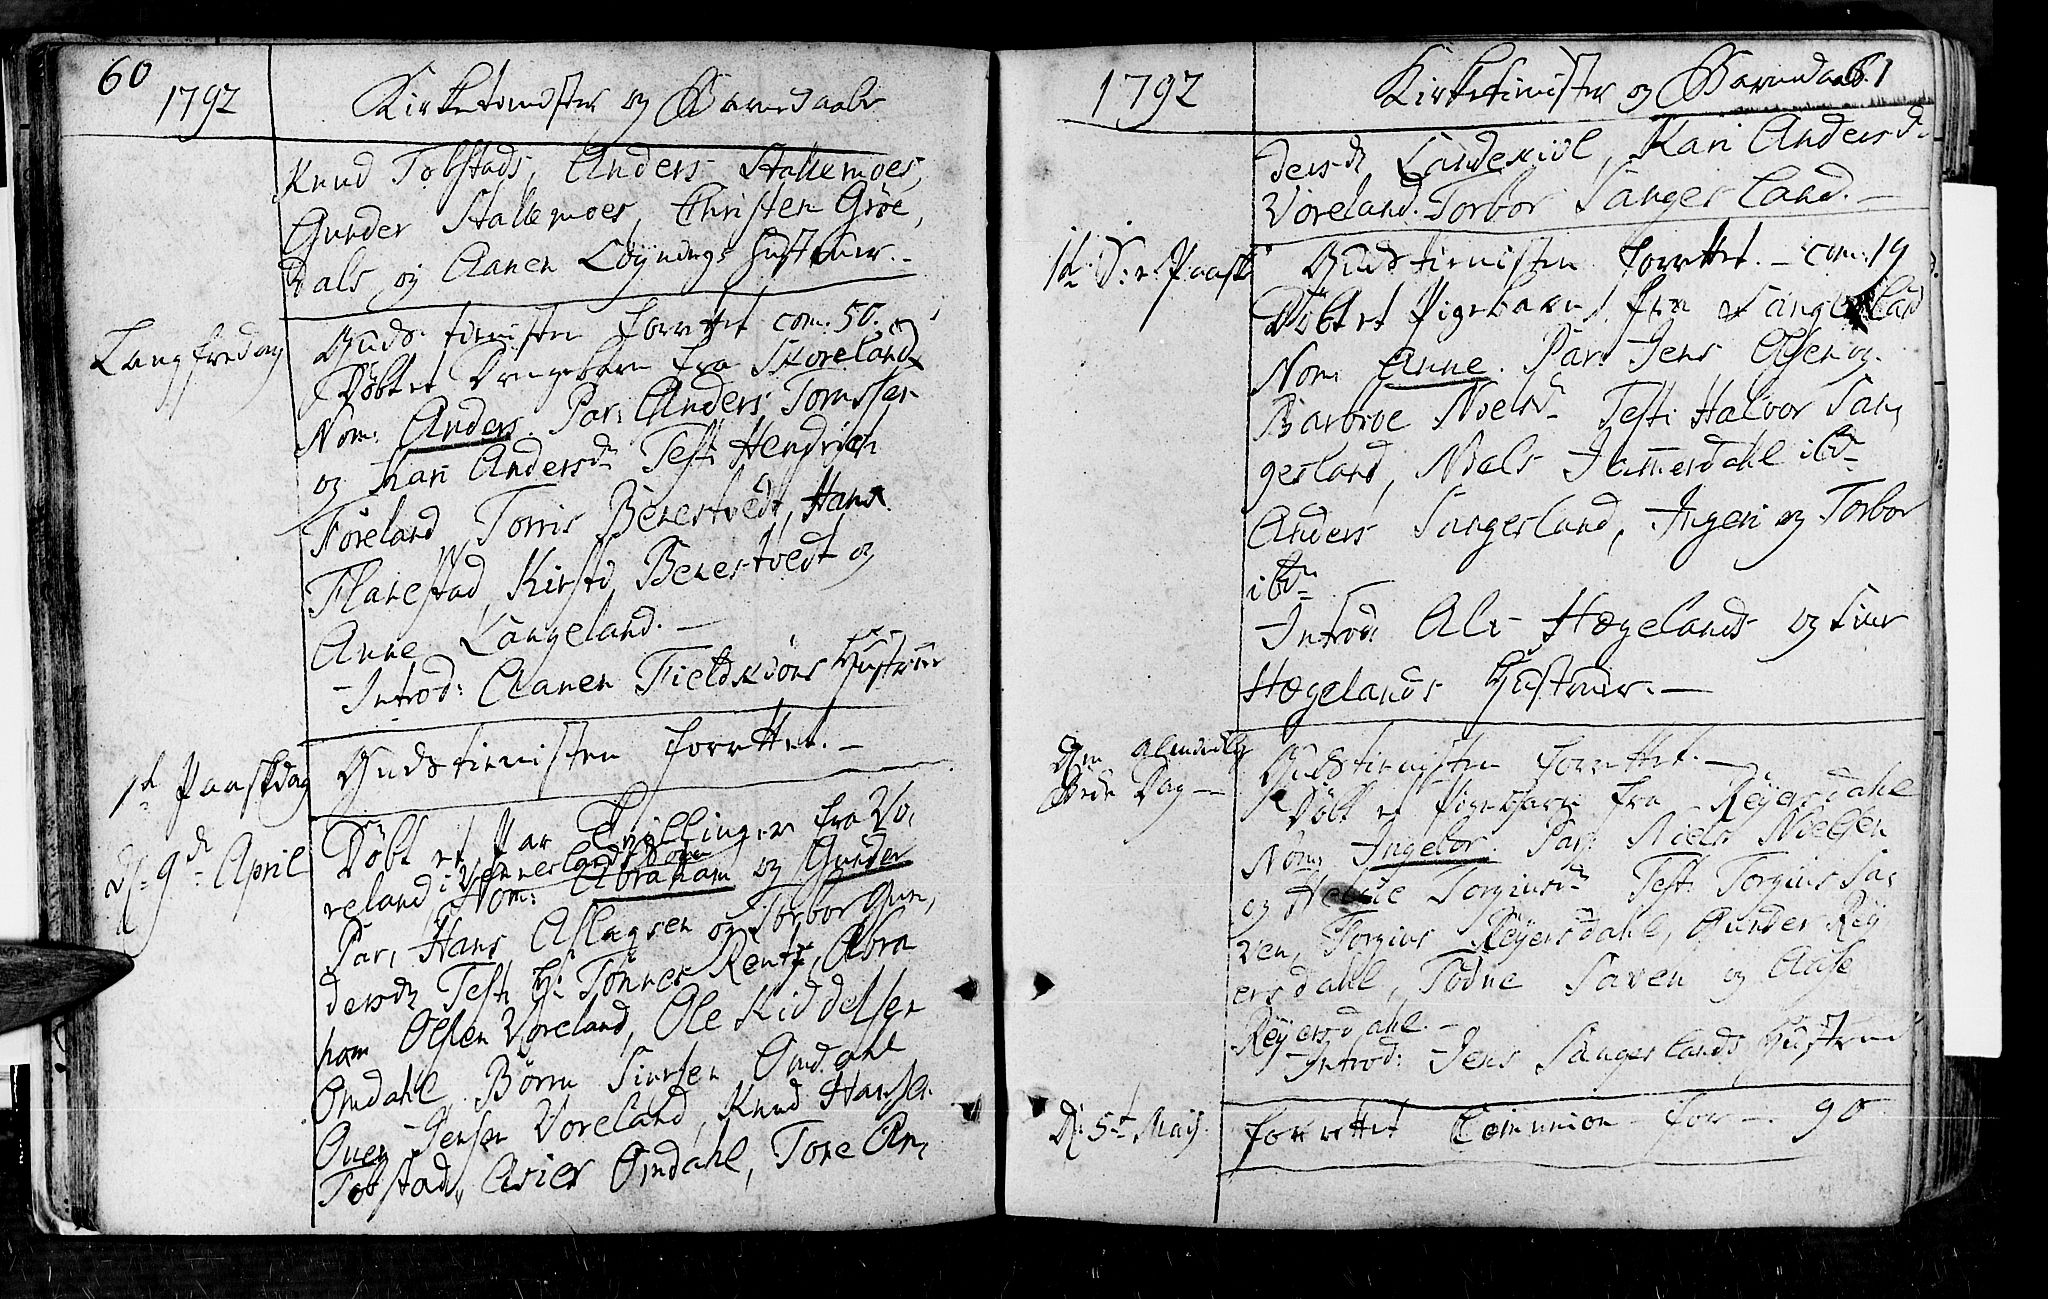 60
1792
Kirketienister og Barnedaab
Knud Tobstads, Anders Stallemoes,
Gunder Stallemoes, Christen Gröe,
dals og Aanen Löynings Hustruer.-
Langfredag
Guds-tienisten forrettet com: 50.
Döbt et Drengebarn fra Skoreland
Nom: Anders. Par: Anders Tomsse-
og Kari Andersdr Test: Hendrich
Föreland, Torris Benestvedt, Hans
Flanestad, Kirstd Benestvedt og
Anne Langeland.-
Introd: Aanen Fieldskiörs Hustrue
1ste Paaskdag
Gudstienisten forrettet.-
D: 9de April
Döbt et Par Tvillinger fra Vo,
reland i Vennesland Sogn
Nom: Abraham og Gunder
Par, Hans Aslagsen og Torbor Gun,
dersdr Test: Hr Tönnes Rentz, Abra
ham Olsen Voreland, Ole Kiddelsen
Omdahl, Börre Siursen Omdahl
Ouen Jensen Voreland, Knud Hansen
Tobstad, Asier Omdahl, Tore An,
1792
Kirketienister og Barnedaab. 61
dersdr Landekiöl, Kari Andersdr
Voreland. Torbor Sangesland.-
1te S: e: Paaske
Gudstienisten forrettet.- com: 19
Döbt et Pigebarn fra Sangesland
Nom: Anne. Par: Jens Olsen og
Barbroe Nielsdr Test: Halvor San,
gesland, Niels Hammersdahl ibdm
Anders Sangesland, Ingeri og Torbor
ibdm
Introd: Ale Hægelands og Siur
Hægelands Hustruer.-
Den Almindelig
Bede Dag -
Gudstienisten forrettet.-
Döbt et Pigebarn fra Reyersdahl
Nom: Ingebor. Par: Niels Nielsen
og Helje Torgiusdr Test: Torgius Sa,
ven, Torgius Reyersdahl, Gunder Rey
ersdahl, Todne Saven og Aase
Reyersdahl.-
Introd: Jens Sangeslands Hustrue
D: 5te Maij.
forrettet Communion for -. 90